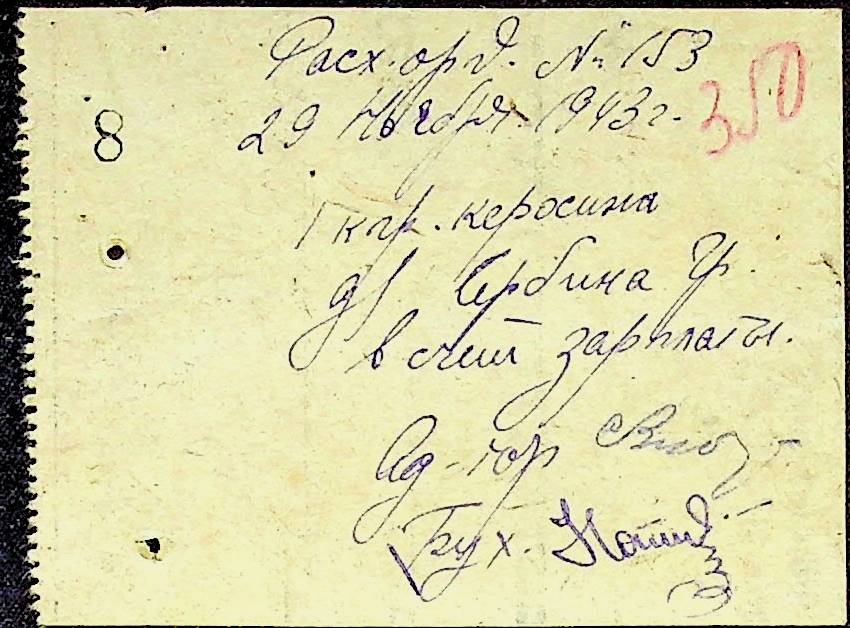 Расх. орд. № 153
350
29 Ноября 1943 г.
8
1 кгр. керосина
д/ Щербина Гр.
в счет зарплаты.
Бух.